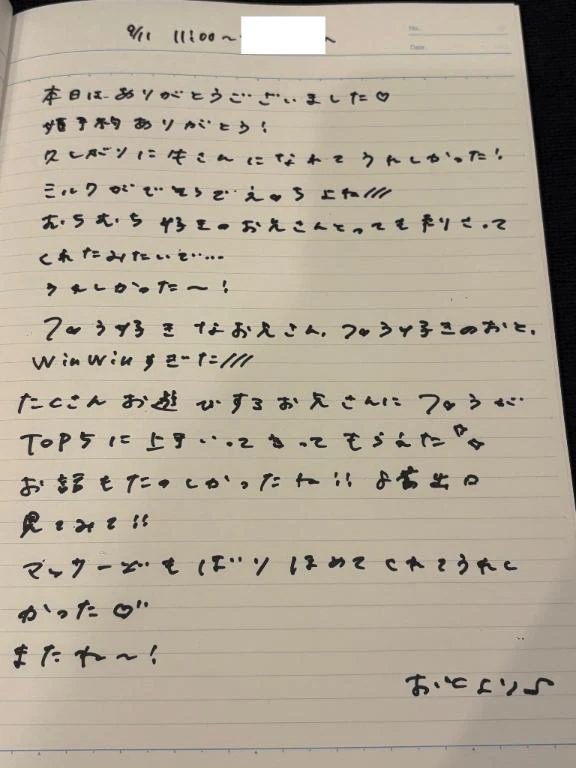 9/11 11:00〜
No.
Date
本日は、ありがとうございました♡
姫予約ありがとう!
久しがりに牛さんになれてうれしかった!
ミルクがでそうでえっちよね///
むちむち好きのお兄さんとっても刺さって
くれたみたいで……
うれしかった〜!
フェラ好きなお兄さん、フェラ好きのおと、
WinWinすぎた///
たくさんお遊びするお兄さんにフェラが
TOP5に上手いって言ってもらえた
お話もたのしかったね!! 出口
見てみて!!
マッサージもばりほめてくれてうれし
かった♡
またね〜!
おとより♪